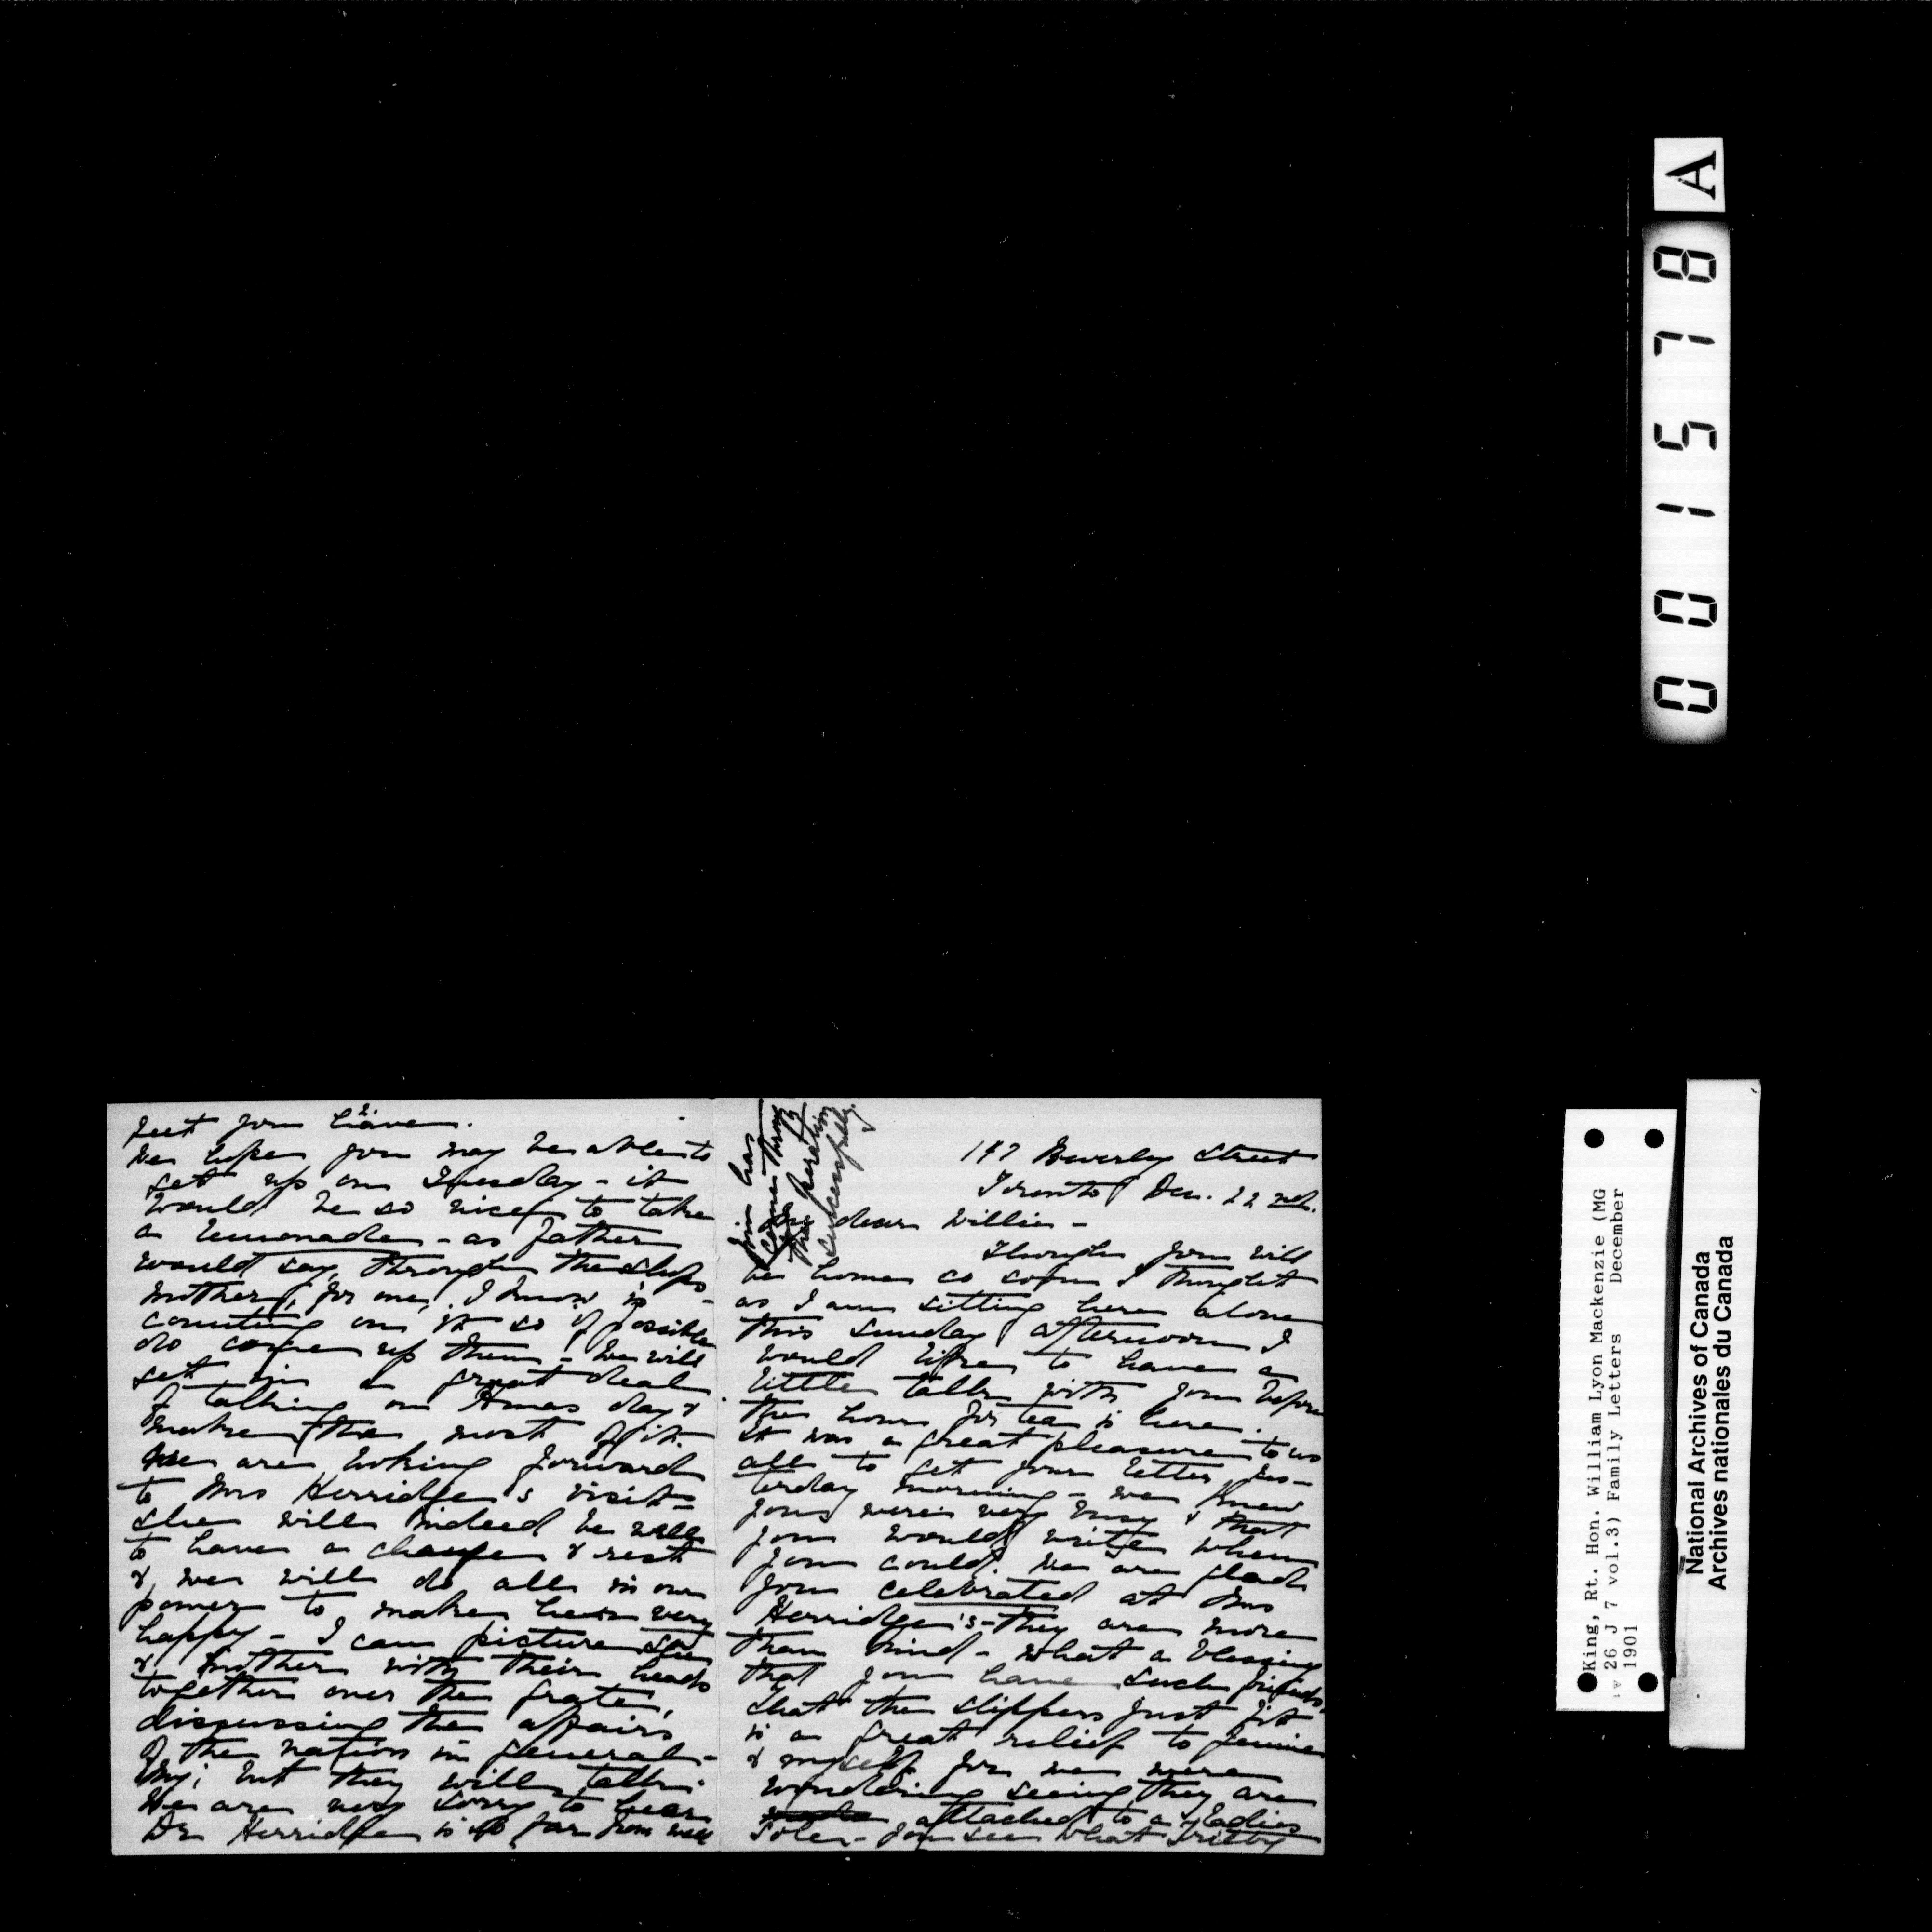 187 Beverley Street
Toronto Dec. 22nd.
My dear Willie -
Though you will
be home so soon I thought
as I am sitting here alone
this Sunday afternoon I
would like to have a
little talk with you before
the hour for tea is here.
It was a great pleasure to us
all to get your letter yes-
terday morning - we knew
you were very busy & that
you would write when
you could. We are glad
you celebrated at Mrs
Herridge's - they are more
than kind - what a blessing
that you have such friends.
That the slippers just fit
is a great relief to Jennie
& myself for we were
wondering seeing they are
attached to a ladies
sole - You see what Trilby
feet you have.
We hope you may be able to
get up on Tuesday - it
would be so nice to take
a lemonade - as father
would say, through the shops -
Mother, for one, I know is
counting on it so if possible
do come up then - We will
get in a great deal
of talking on Xmas day &
make the most of it.
We are looking forward
to Mrs Herridge's visit -
she will indeed be
to have a change & rest
& we will do all in our
power to make her very
happy - I can picture
& mother with their heads
together over the grate,
discussing the affairs
of the nation in general -
My; but they will talk.
We are very sorry to hear
Dr Herridge is so far from well
has
come through
the operation
successfully.
2
A
0 0 1 5 7 8
King, Rt. Hon. William Lyon Mackenzie (MG
26 J 7 vol.3) Family Letters December
1901
National Archives of Canada
Archives nationales du Canada